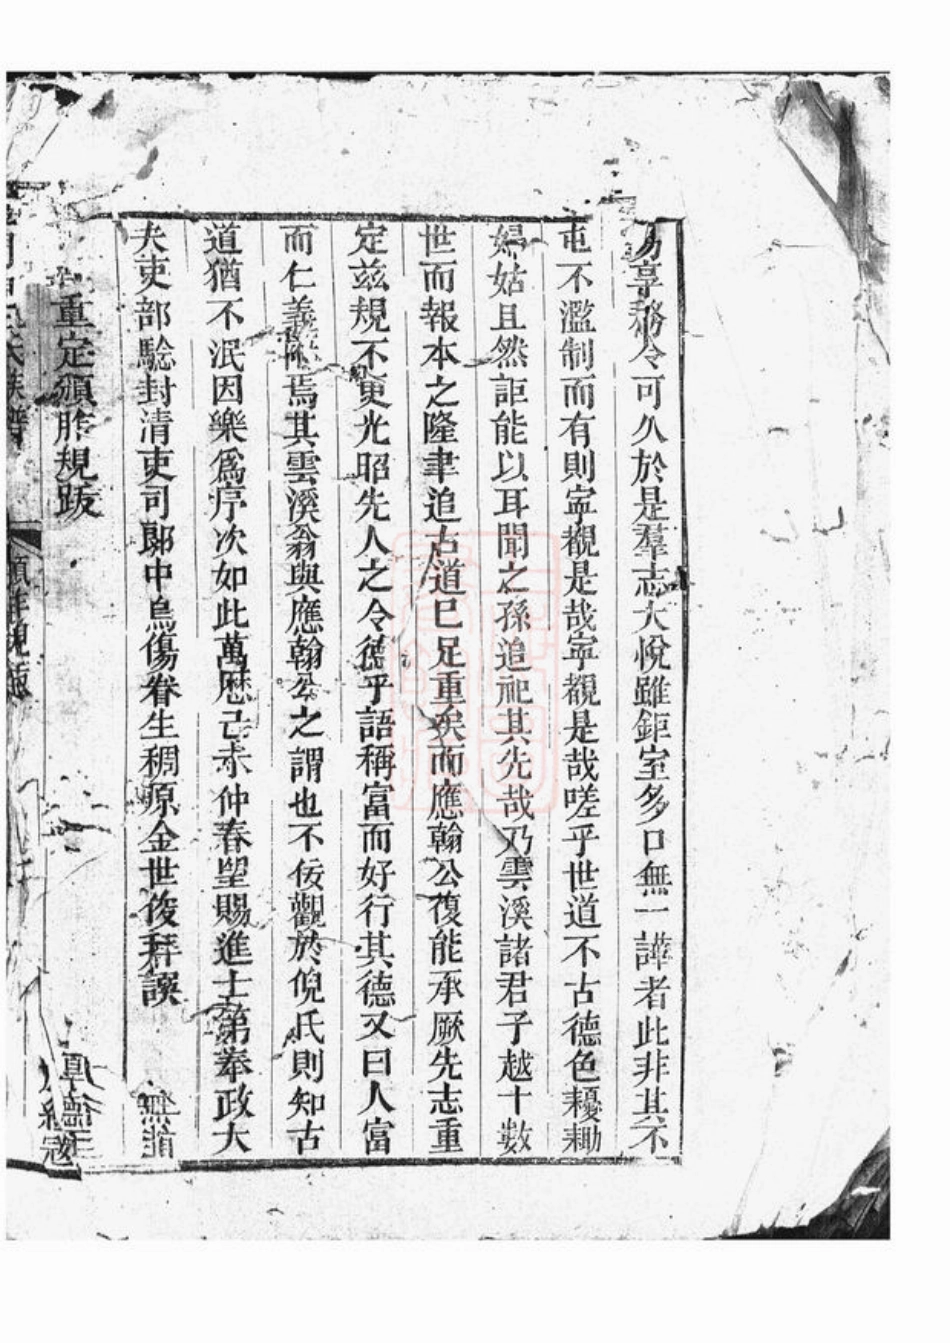 易享務令可久於是羣志大悅雖鉅室多口無一譁者此非其不
屯不濫制而有則寧覩是哉寧覩是哉嗟乎世道不古德色耰耡
婦姑且然詎能以耳聞之孫追祀其先哉乃雲溪諸君子越十數
世而報本之隆聿追古道巳足重矣而應翰公復能承厥先志重
定茲規不更光昭先人之令德乎語稱富而好行其德又曰人富
而仁義附焉其雲溪翁與應翰公之謂也不佞觀於倪氏則知古
道猶不泯因樂爲序次如此萬歷己未仲春望賜進士第奉政大
夫吏部驗封清吏司郞中烏傷眷生稠原金世俊拜譔
重定頒胙規跋
氏族譜